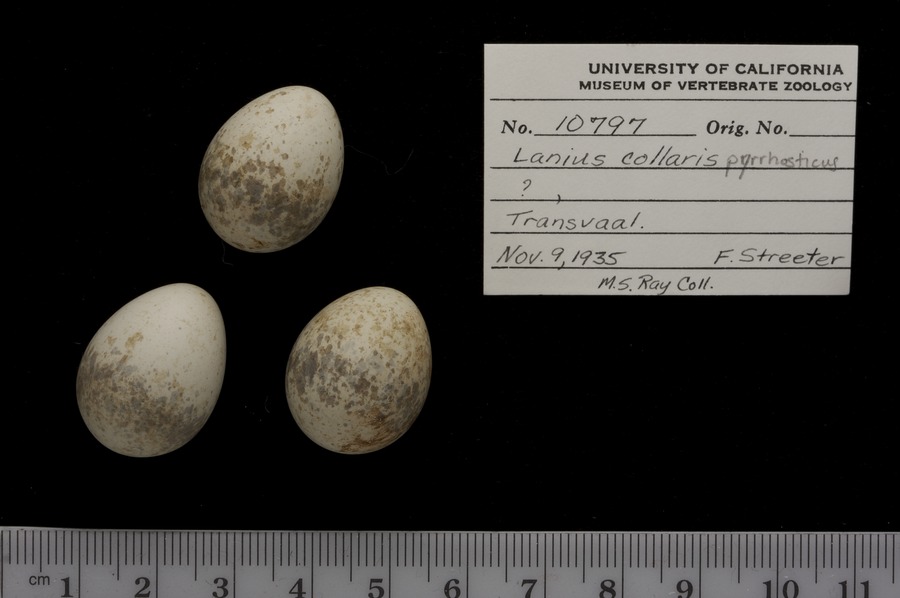 UNIVERSITY OF CALIFORNIA
MUSEUM OF VERTEBRATE ZOOLOGY
No. 10797 Orig. No.
Lanius collaris pyrrhosticus
? ,
Transvaal.
Nov. 9, 1935 F. Streeter
M.S. Ray Coll.
cm 1 2 3 4 5 6 7 8 9 10 11